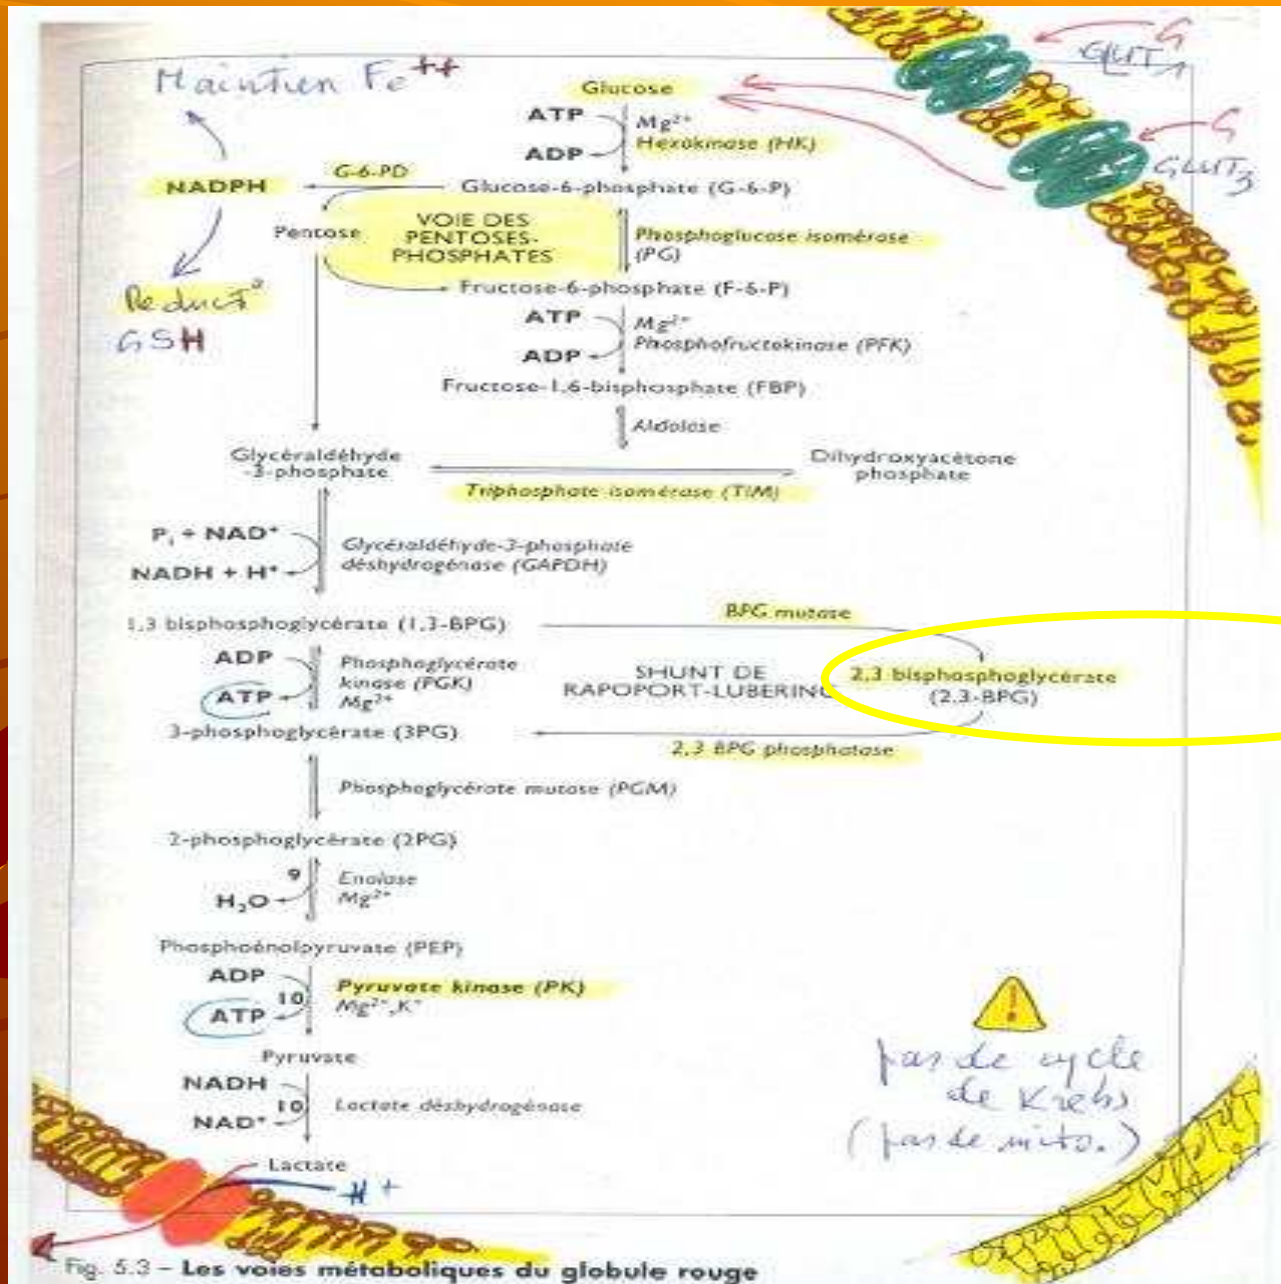 Maintien Fe++
G
GLUT1
Glucose
ATP
Mg²⁺
Hexokinase (HK)
ADP
G
GLUT3
NADPH
G-6-PD
Glucose-6-phosphate (G-6-P)
Pentose
VOIE DES
PENTOSES-
PHOSPHATES
Phosphoglucose isomérase
(PG)
Reduct°
GSH
Fructose-6-phosphate (F-6-P)
ATP
Mg²⁺
Phosphofructokinase (PFK)
ADP
Fructose-1,6-bisphosphate (FBP)
Aldolase
Glycéraldéhyde
-3-phosphate
Dihydroxyacétone
phosphate
Triphosphate isomérase (TIM)
Pi + NAD⁺
NADH + H⁺
Glycéraldéhyde-3-phosphate
déshydrogénase (GAPDH)
1,3 bisphosphoglycérate (1,3-BPG)
BPG mutase
ADP
ATP
Phosphoglycérate
kinase (PGK)
Mg²⁺
SHUNT DE
RAPOPORT-LUBERING
2,3 bisphosphoglycérate
(2,3-BPG)
3-phosphoglycérate (3PG)
2,3 BPG phosphatase
Phosphoglycérate mutase (PGM)
2-phosphoglycérate (2PG)
9
Enolase
Mg²⁺
H₂O
Phosphoénolpyruvate (PEP)
ADP
10
ATP
Pyruvate kinase (PK)
Mg²⁺,K⁺
Pyruvate
NADH
10
NAD⁺
Lactate déshydrogénase
!
pas de cycle
de Krebs
(pas de mito.)
Lactate
H+
Fig. 5.3 – Les voies métaboliques du globule rouge